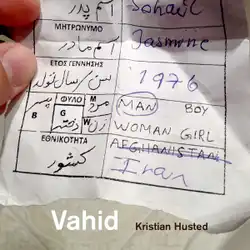 اسم پدر Sohail
ΜΗΤΡΩΝΥΜΟ
اسم مادر Jasmine
ΕΤΟΣ ΓΕΝΝΗΣΗΣ
سن/سال تولد 1976
ΦΥΛΟ M MAN BOY
پسر مرد
B G W WOMAN GIRL
دختر زن
ΕΘΝΙΚΟΤΗΤΑ AFGHANISTAN
کشور Iran
Vahid Kristian Husted